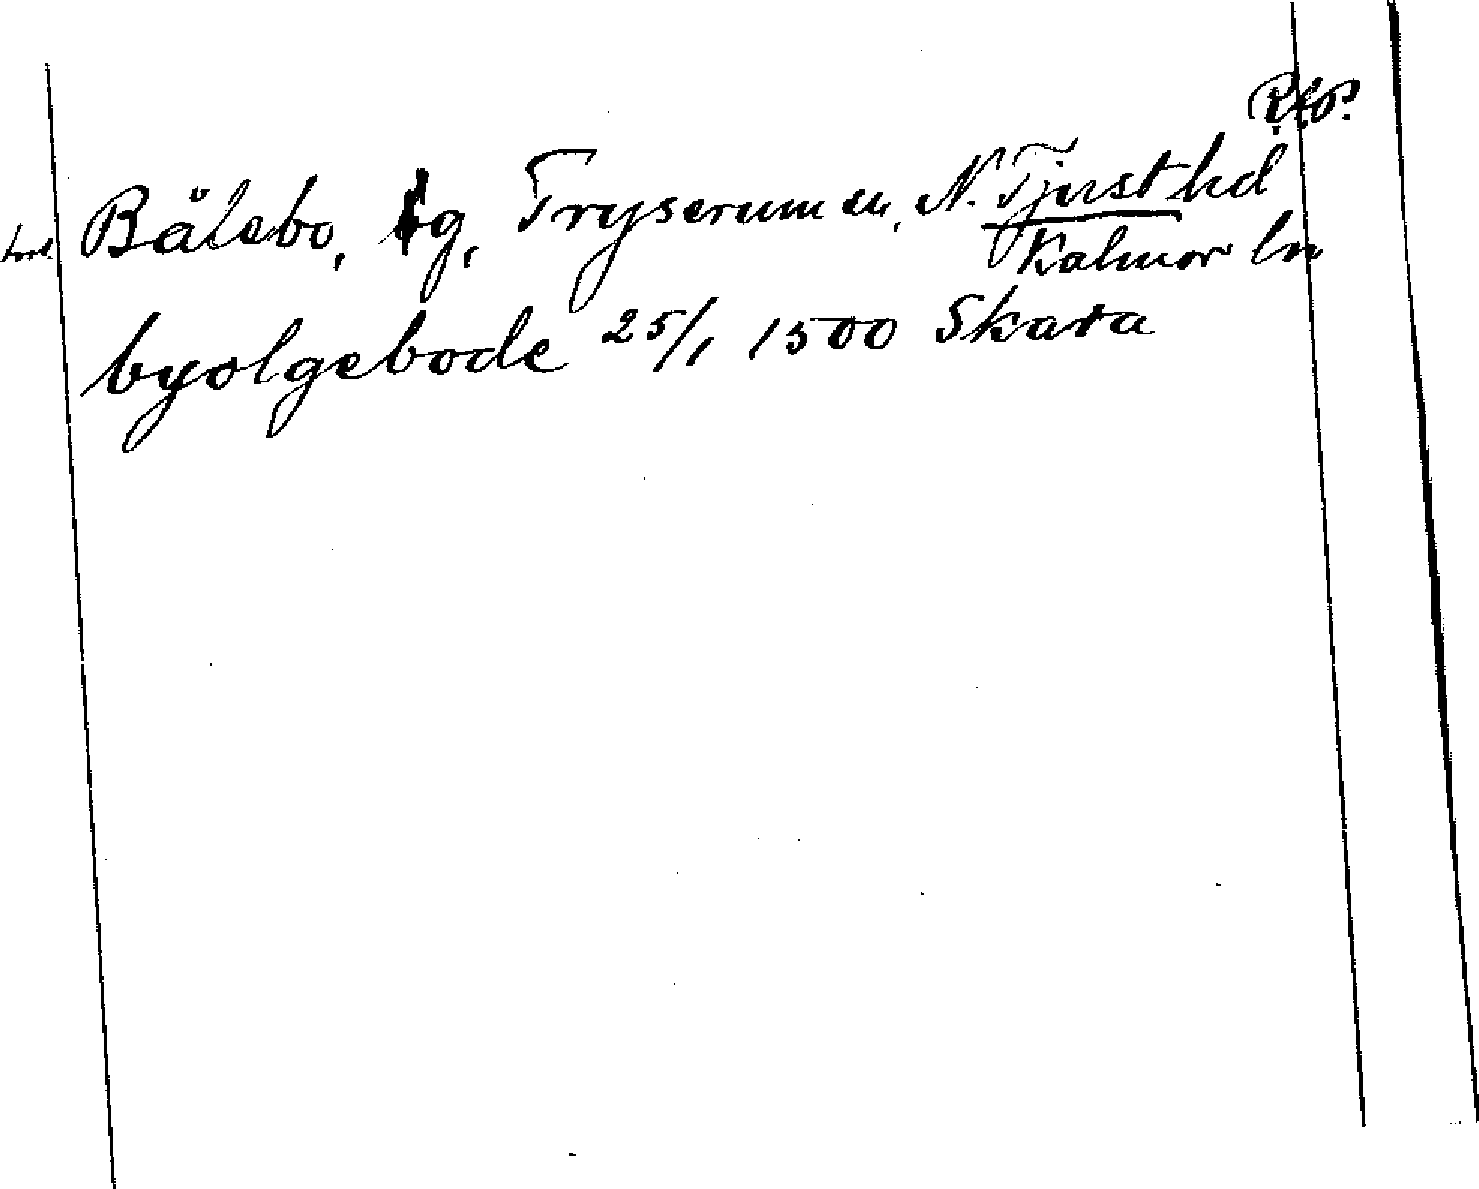 Rep.
Bälebo, g, Tryserum sn, N. Tjust hd
Kalmar ln
byolgebode 25/1 1500 Skara